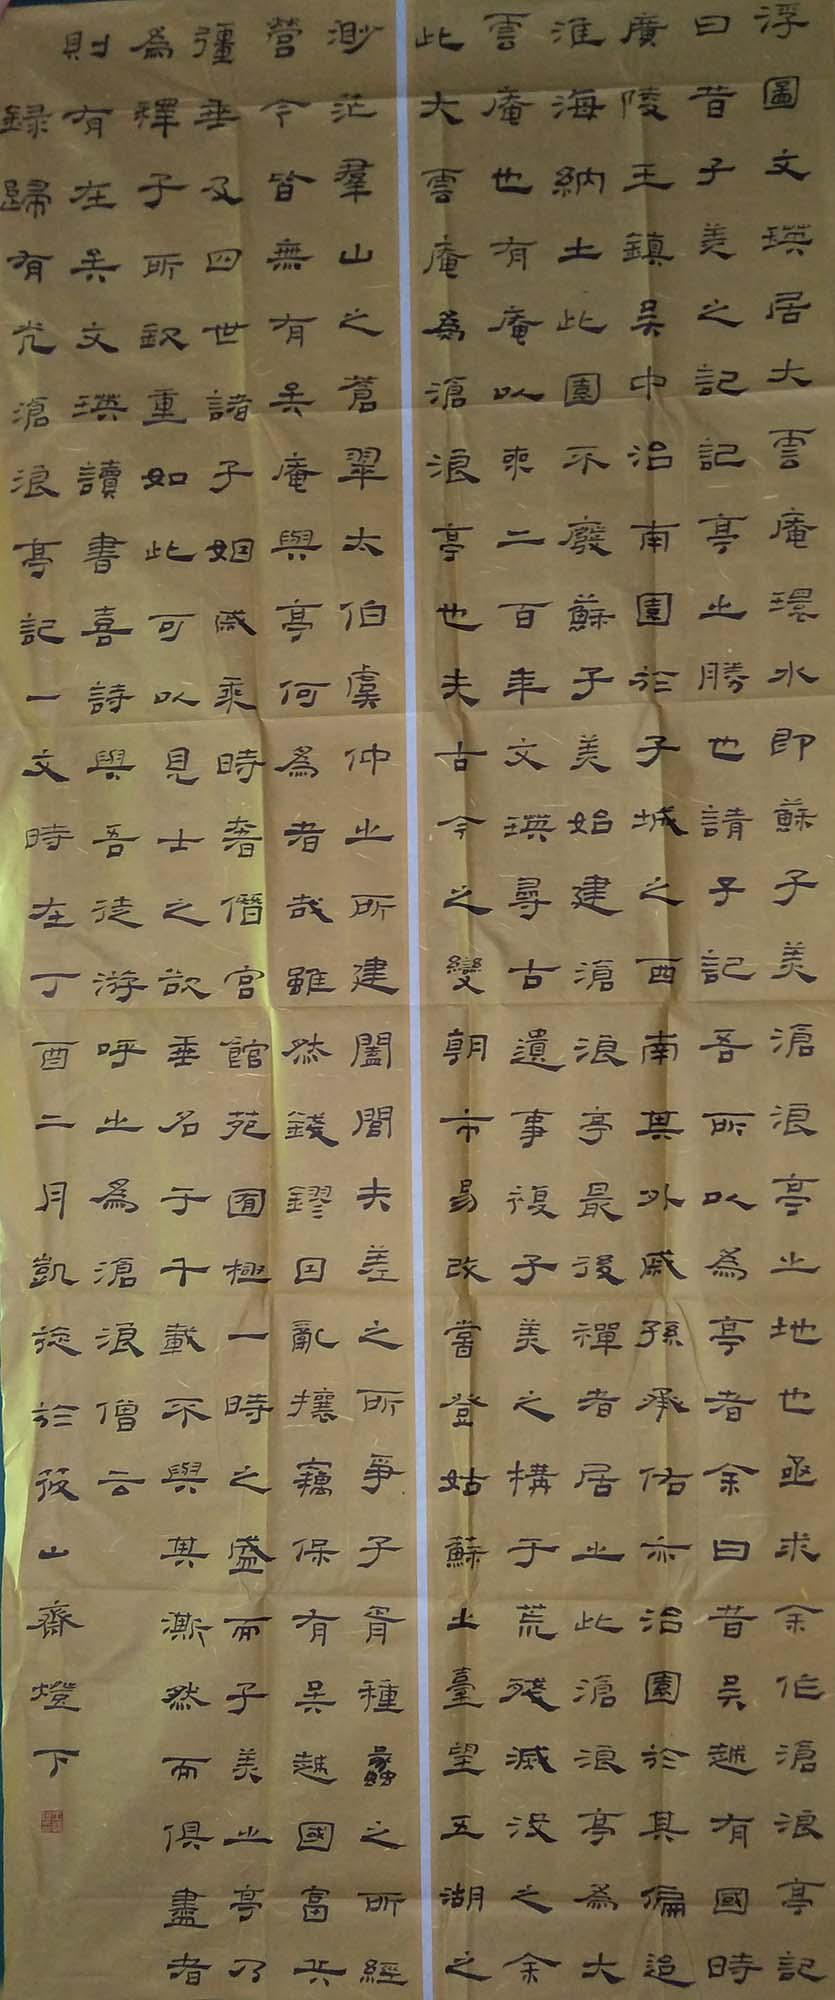 浮圖文瑛居大雲庵環水即蘇子美滄浪亭之地也亟求余作滄浪亭記
曰昔子美之記記亭之勝也請子記吾所以為亭者余曰昔吳越有國時
廣陵王鎮吳中治南園於子城之西南其外戚孫承佑亦治園於其偏迨
淮海納土此園不廢蘇子美始建滄浪亭最後禪者居之此滄浪亭為大
雲庵也有庵以來二百年文瑛尋古遺事複子美之構于荒殘滅沒之余
此大雲庵為滄浪亭也夫古今之變朝市易改嘗登姑蘇之臺望五湖之
渺茫羣山之蒼翠太伯虞仲之所建闔閭夫差之所爭子胥種蠡之所經
營今皆無有矣庵與亭何為者哉雖然錢鏐因亂攘竊保有吳越國富兵
彊垂及四世諸子姻戚乘時奢僭宮館苑囿極一時之盛而子美之亭乃
為釋子所欽重如此可以見士之欲垂名于千載不與其澌然而俱盡者
則有在矣文瑛讀書喜詩與吾徒游呼之為滄浪僧云
録歸有光滄浪亭記一文時在丁酉二月凱旋於筱山齋燈下